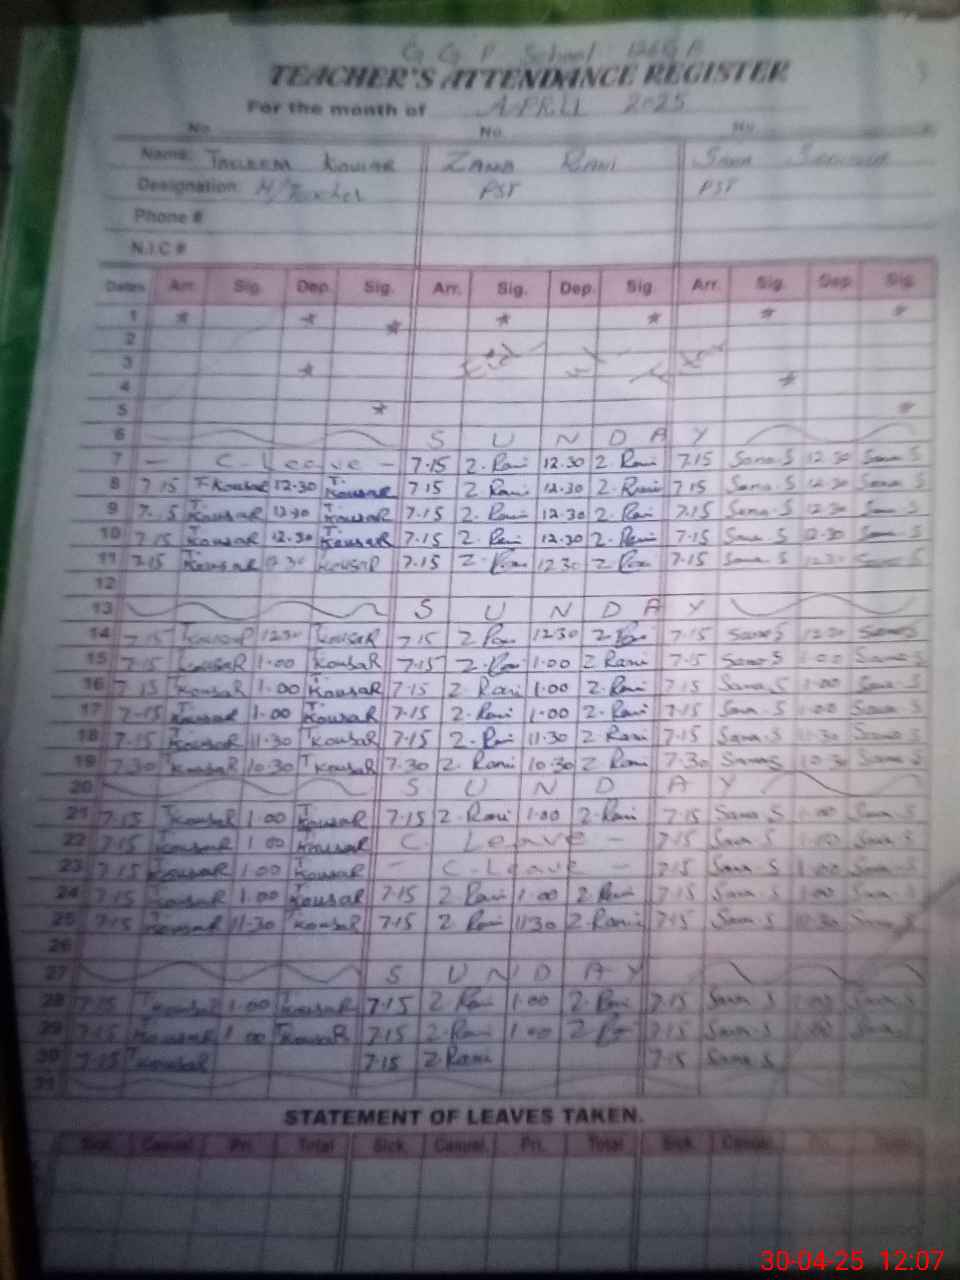 G G P School
TEACHER'S ATTENDANCE REGISTER
For the month of APRIL 2025
No. No. No.
Name: Kousar Zama Rani Sana
Designation: H/Teacher PST PST
Phone #
N.I.C #
Dates Arr. Sig. Dep. Sig. Arr. Sig. Dep. Sig. Arr. Sig. Dep. Sig.
1 * * * * * * *
2
3 * Eid
4 *
5 * *
6 S U N D A Y
7 – C. Leave – 7.15 Z. Rani 12.30 Z. Rani 7.15 Sana. S 12.30 Sana S
8 7.15 T. Kousar 12.30 T. Kousar 7.15 Z Rani 12.30 Z. Rani 7.15 Sana. S 12.30 Sana S
9 7.15 T. Kousar 12.30 T. Kousar 7.15 Z. Rani 12.30 Z. Rani 7.15 Sana. S 12.30 Sana S
10 7.15 T. Kousar 12.30 T. Kousar 7.15 Z. Rani 12.30 Z. Rani 7.15 Sana S 12.30 Sana S
11 7.15 T. Kousar 12.30 Kousar 7.15 Z. Rani 12.30 Z Rani 7.15 Sana. S 12.30 Sana S
12
13 S U N D A Y
14 7.15 T Kousar 12.30 T Kousar 7.15 Z Rani 12.30 Z. Rani 7.15 Sana S 12.30 Sana S
15 7.15 T Kousar 1.00 T Kousar 7.15 Z. Rani 1.00 Z Rani 7.15 Sana S 1.00 Sana S
16 7.15 T Kousar 1.00 T. Kousar 7.15 Z. Rani 1.00 Z. Rani 7.15 Sana. S 1.00 Sana. S
17 7.15 T. Kousar 1.00 T. Kousar 7.15 Z. Rani 1.00 Z. Rani 7.15 Sana. S 1.00 Sana S
18 7.15 T. Kousar 11.30 T Kousar 7.15 Z. Rani 11.30 Z Rani 7.15 Sana. S 11.30 Sana S
19 7.30 T Kousar 10.30 T Kousar 7.30 Z. Rani 10.30 Z Rani 7.30 Sana S 10.30 Sana S
20 S U N D A Y
21 7.15 T Kousar 1.00 T. Kousar 7.15 Z. Rani 1.00 Z. Rani 7.15 Sana S 1.00 Sana S
22 7.15 T Kousar 1.00 T Kousar C. Leave – 7.15 Sana S 1.00 Sana S
23 7.15 T Kousar 1.00 T Kousar – C. Leave – 7.15 Sana. S 1.00 Sana. S
24 7.15 T Kousar 1.00 T Kousar 7.15 Z Rani 1.00 Z Rani 7.15 Sana. S 1.00 Sana S
25 7.15 T Kousar 11.30 T Kousar 7.15 Z Rani 11.30 Z. Rani 7.15 Sana. S Sana S
26
27 S U N D A Y
28 7.15 T Kousar 1.00 T Kousar 7.15 Z Rani 1.00 Z. Rani 7.15 Sana S 1.00 Sana. S
29 7.15 Kousar 1.00 T Kousar 7.15 Z. Rani 1.00 Z. Rani 7.15 Sana. S 1.00 Sana
30 7.15 T Kousar 7.15 Z. Rani 7.15 Sana S
31
STATEMENT OF LEAVES TAKEN.
Sick. Casual. Pri. Total Sick. Casual. Pri. Total Sick. Casual.
30-04-25 12:07